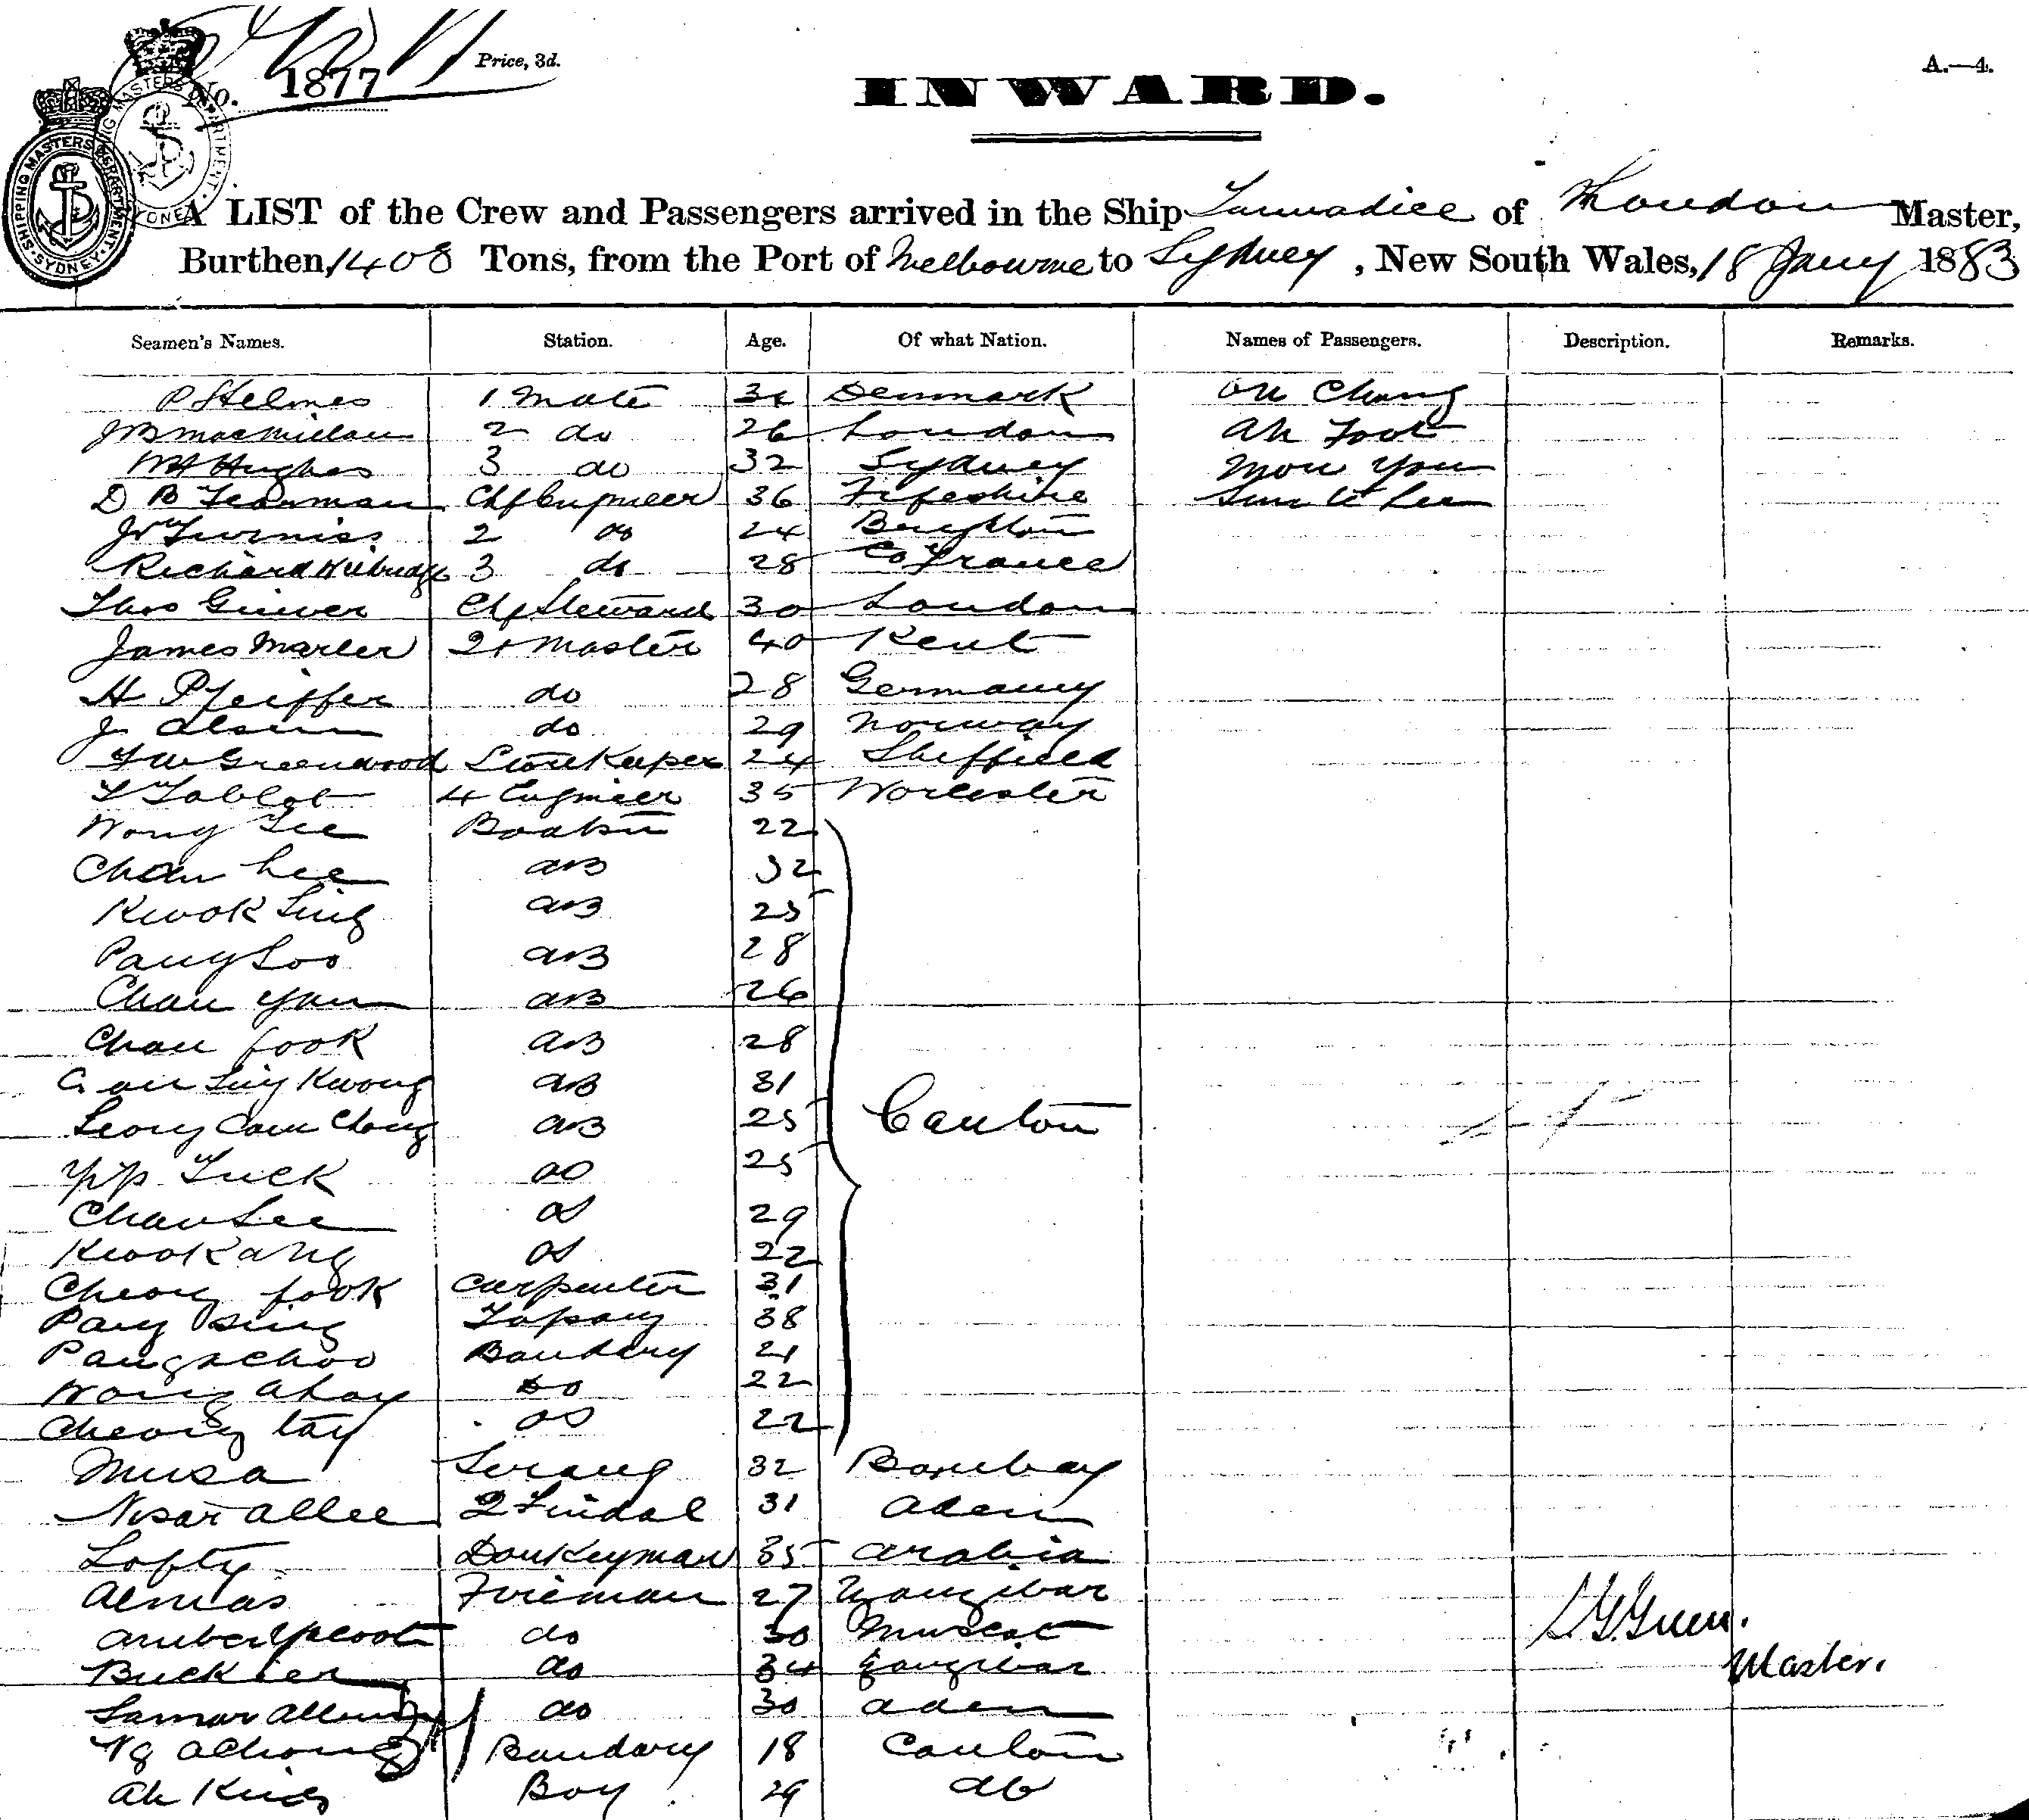 No. 1877
Price, 3d.
A.—4.
INWARD.
SHIPPING MASTERS DEPARTMENT SYDNEY
A LIST of the Crew and Passengers arrived in the Ship Tannadice of London Master,
Burthen 1408 Tons, from the Port of Melbourne to Sydney, New South Wales, 18 Jany 1883
Seamen's Names. Station. Age. Of what Nation. Names of Passengers. Description. Remarks.
P Helmes 1 Mate Denmark On Chong
JB MacMillan 2 do 26 London Ah Foot
WH Hughes 3 do 32 Sydney Mow You
D B Chf Engineer 36 Fifeshire Lee
Furniss 2 do 24 Brighton
Richard 3 do 28 France
Thos Chf Steward 30 London
James Marler Qr Master 40 Kent
H Pfeiffer do 28 Germany
J Olsen do 29 Norway
Greenwood Storekeeper 24 Sheffield
4 Engineer 35 Worcester
Wong 22
Chan Lee AB 32
Kwok AB 25
Pang Loo AB 28
Chan Yan AB 26
Chan fook AB 28
Kwong AB 31
Leong Chong AB 25 Canton
Yip 25
Chan OS 29
Kwok ang OS 22
Cheong fook Carpenter 31
Pang Sing 38
Bandary 21
Wong ahoy do 22
Cheong tay 22
Musa Serang 32 Bombay
Nisar allee 2 Tindal 31 Aden
Lofty Donkeyman 35 Arabia
Almas Fireman 27 Zanzibar
do 30 Muscat
do 34 Zanzibar
do 30 Aden
Ng Bandary 18 Canton
Ah Boy 29 do
Green.
Master.